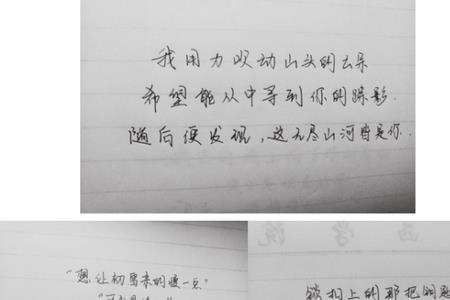 我用力吹动山头的云朵
希望能从中寻到你的踪影.
随后便发现，这无尽山河皆是你.
"想让初雪来的慢一点"
锁扣上的那把钥匙